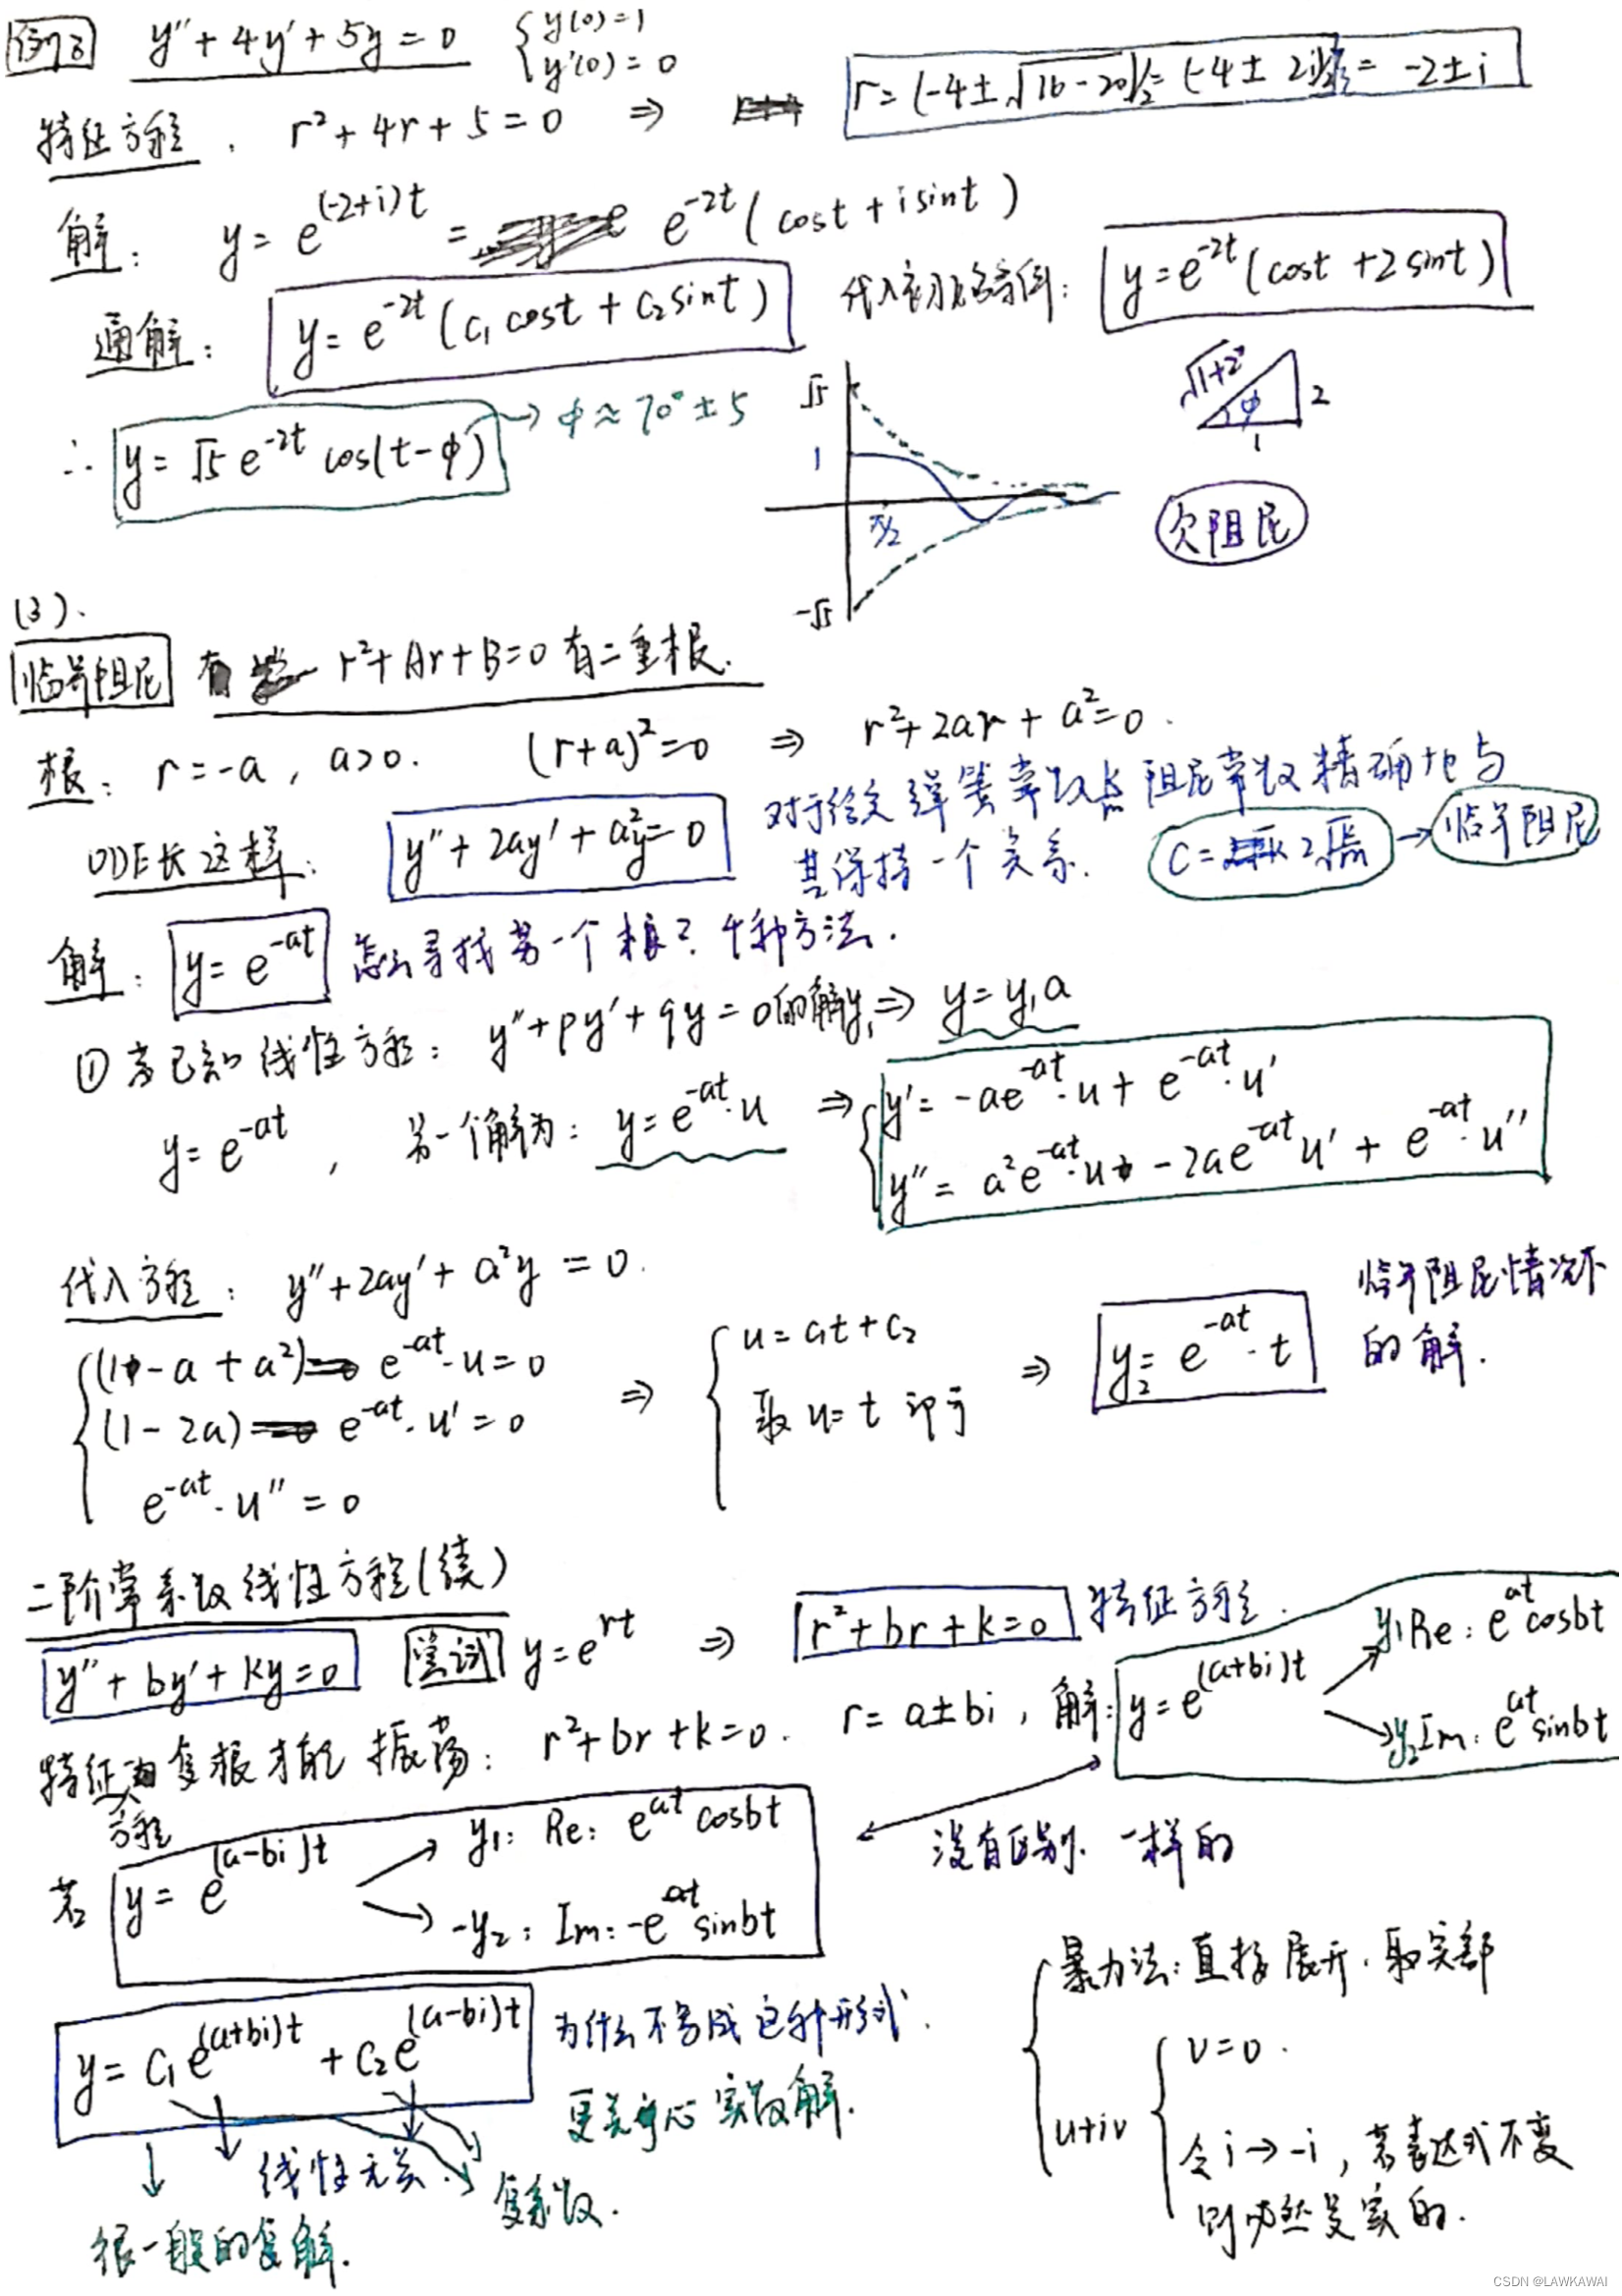 例3 y″+4y′+5y=0 { y(0)=1 y′(0)=0
特征方程. r²+4r+5=0 ⇒ r=(-4±√16-20)/2=(-4±2i)/2= -2±i
解: y= e^(-2+i)t = e^-2t(cost+isint)
通解: y= e^-2t(c₁cost+c₂sint) 代入初始条件: y=e^-2t(cost+2sint)
∴ y= √5 e^-2t cos(t-φ) → φ≈70°±5
√5 1 π/2 -√5
√1+2² φ 2 1
欠阻尼
(3).
临界阻尼 r²+Ar+B=0有二重根.
根: r=-a, a>0. (r+a)²=0 ⇒ r²+2ar+a²=0.
ODE长这样: y″+2ay′+a²y=0 对于给定弹簧常数k 阻尼常数精确地与
其保持一个关系. c= 2√km → 临界阻尼
解: y= e^-at 怎么寻找另一个根? 4种方法.
① 若已知线性方程: y″+py′+qy=0的解y₁⇒ y=y₁a
y= e^-at, 另一个解为: y=e^-at·u ⇒ { y′= -ae^-at·u+ e^-at·u′
y″= a²e^-at·u - 2ae^-at u′ + e^-at·u″
代入方程: y″+2ay′+a²y=0.
(1-a+a²) e^-at·u=0
(1-2a) e^-at·u′=0
e^-at·u″=0
⇒ { u=c₁t+c₂
取u=t 即可
⇒ y₂= e^-at·t 临界阻尼情况下
的解.
二阶常系数线性方程(续)
y″+by′+ky=0 尝试 y=e^rt ⇒ r²+br+k=0 特征方程.
特征方程 复根才能振荡: r²+br+k=0. r=a±bi, 解: y=e^(a+bi)t
y₁Re: e^at cosbt
y₂Im: e^at sinbt
若 y= e^(a-bi)t
y₁: Re: e^at cosbt
-y₂: Im: -e^at sinbt
没有区别. 一样的
y= C₁e^(a+bi)t + C₂e^(a-bi)t 为什么不写成这种形式.
更关心实数解.
线性无关. 复系数.
很一般的复解.
暴力法: 直接展开. 取实部
u+iv { v=0.
令i→-i, 若表达式不变
则必然是实的.
CSDN @LAWKAWAI